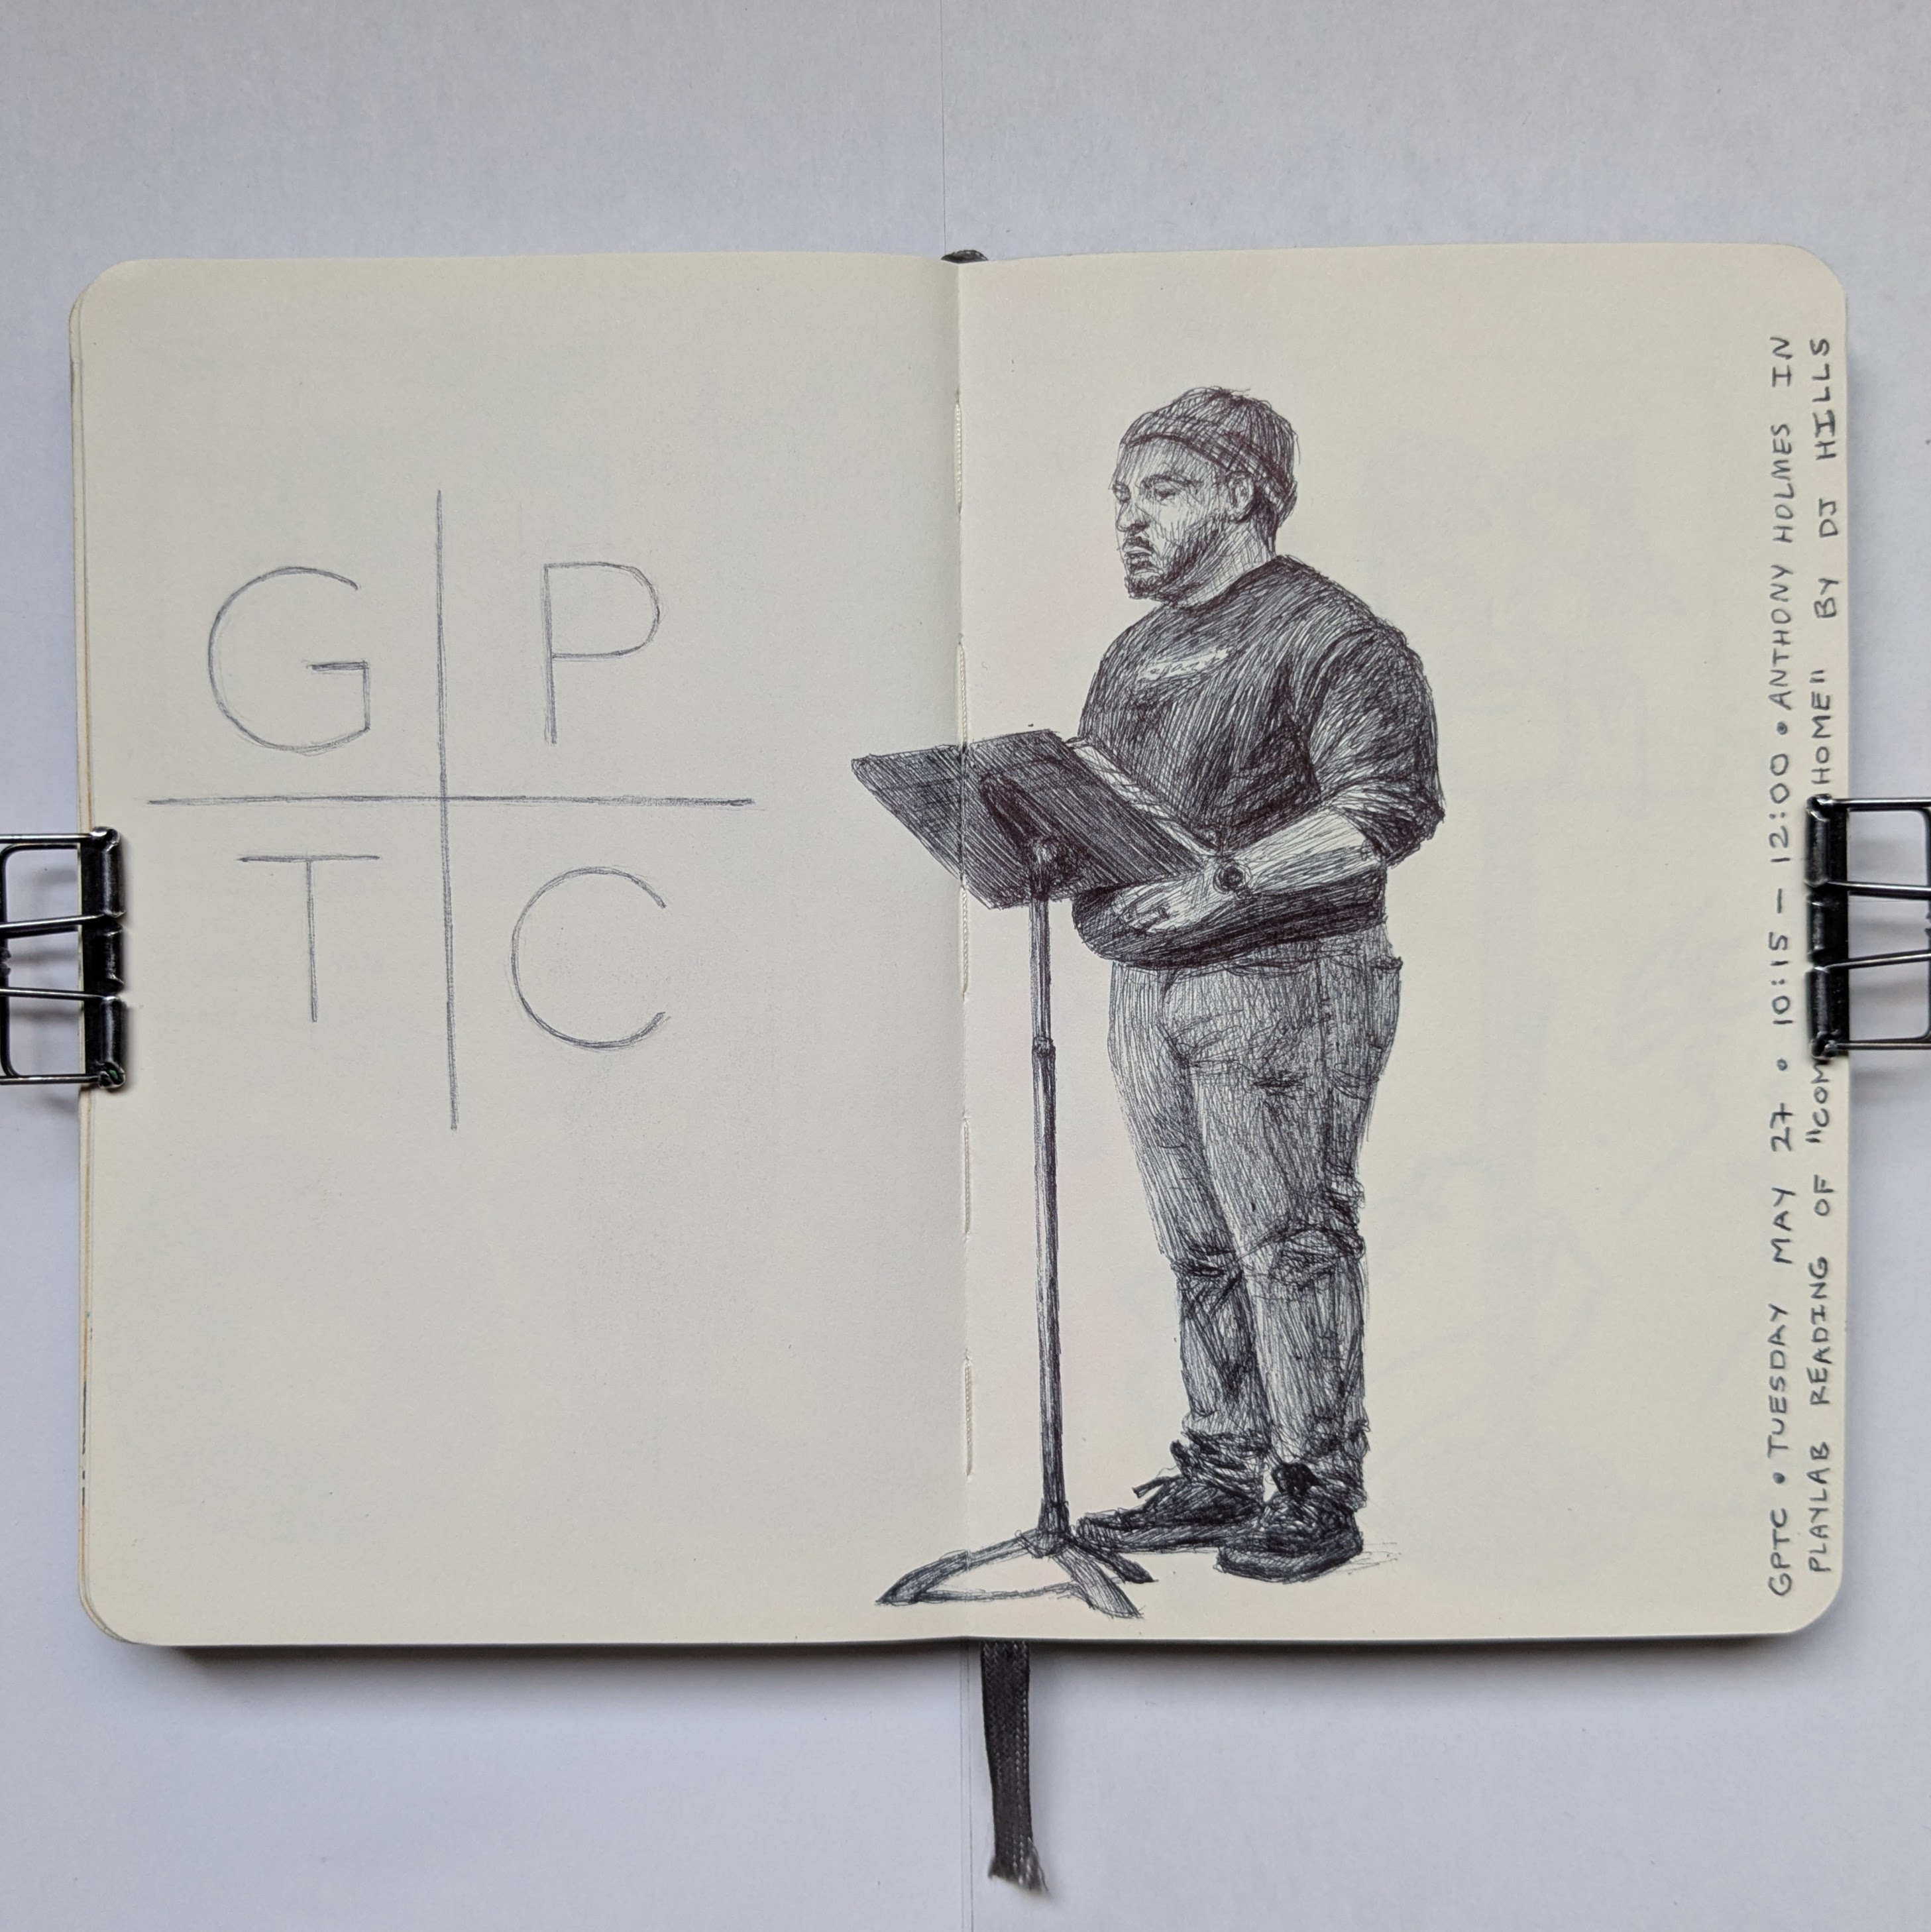 G P
T C
GPTC • TUESDAY MAY 27 • 10:15 – 12:00 • ANTHONY HOLMES IN
PLAYLAB READING OF "COM HOME" BY DJ HILLS